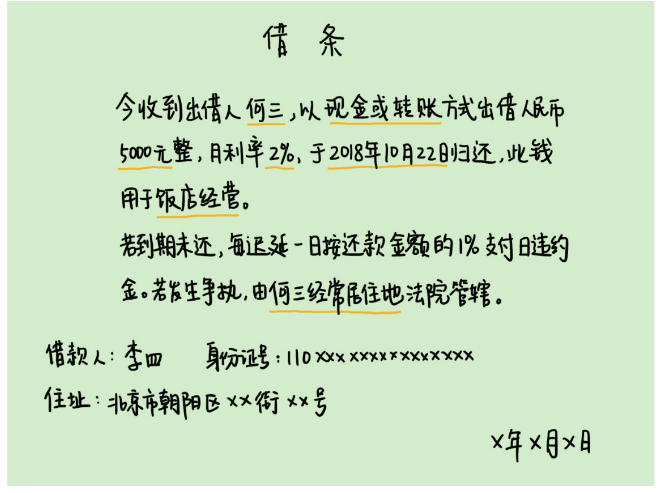 借条
今收到出借人何三,以现金或转账方式出借人民币
5000元整,月利率2%,于2018年10月22日归还,此钱
用于饭店经营。
若到期未还,每迟延一日按还款金额的1%支付日违约
金。若发生争执,由何三经常居住地法院管辖。
借款人:李四 身份证号:110xxxxxxxxxxxxxxx
住址:北京市朝阳区xx街xx号
x年x月x日